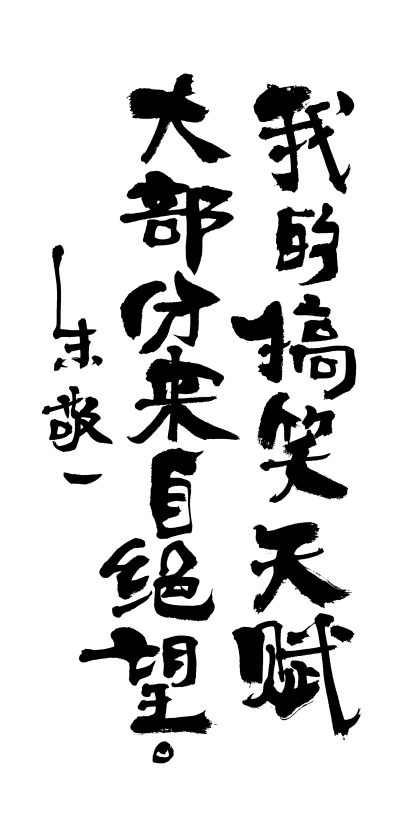 我的搞笑天赋
大部分来自绝望。
朱敬一